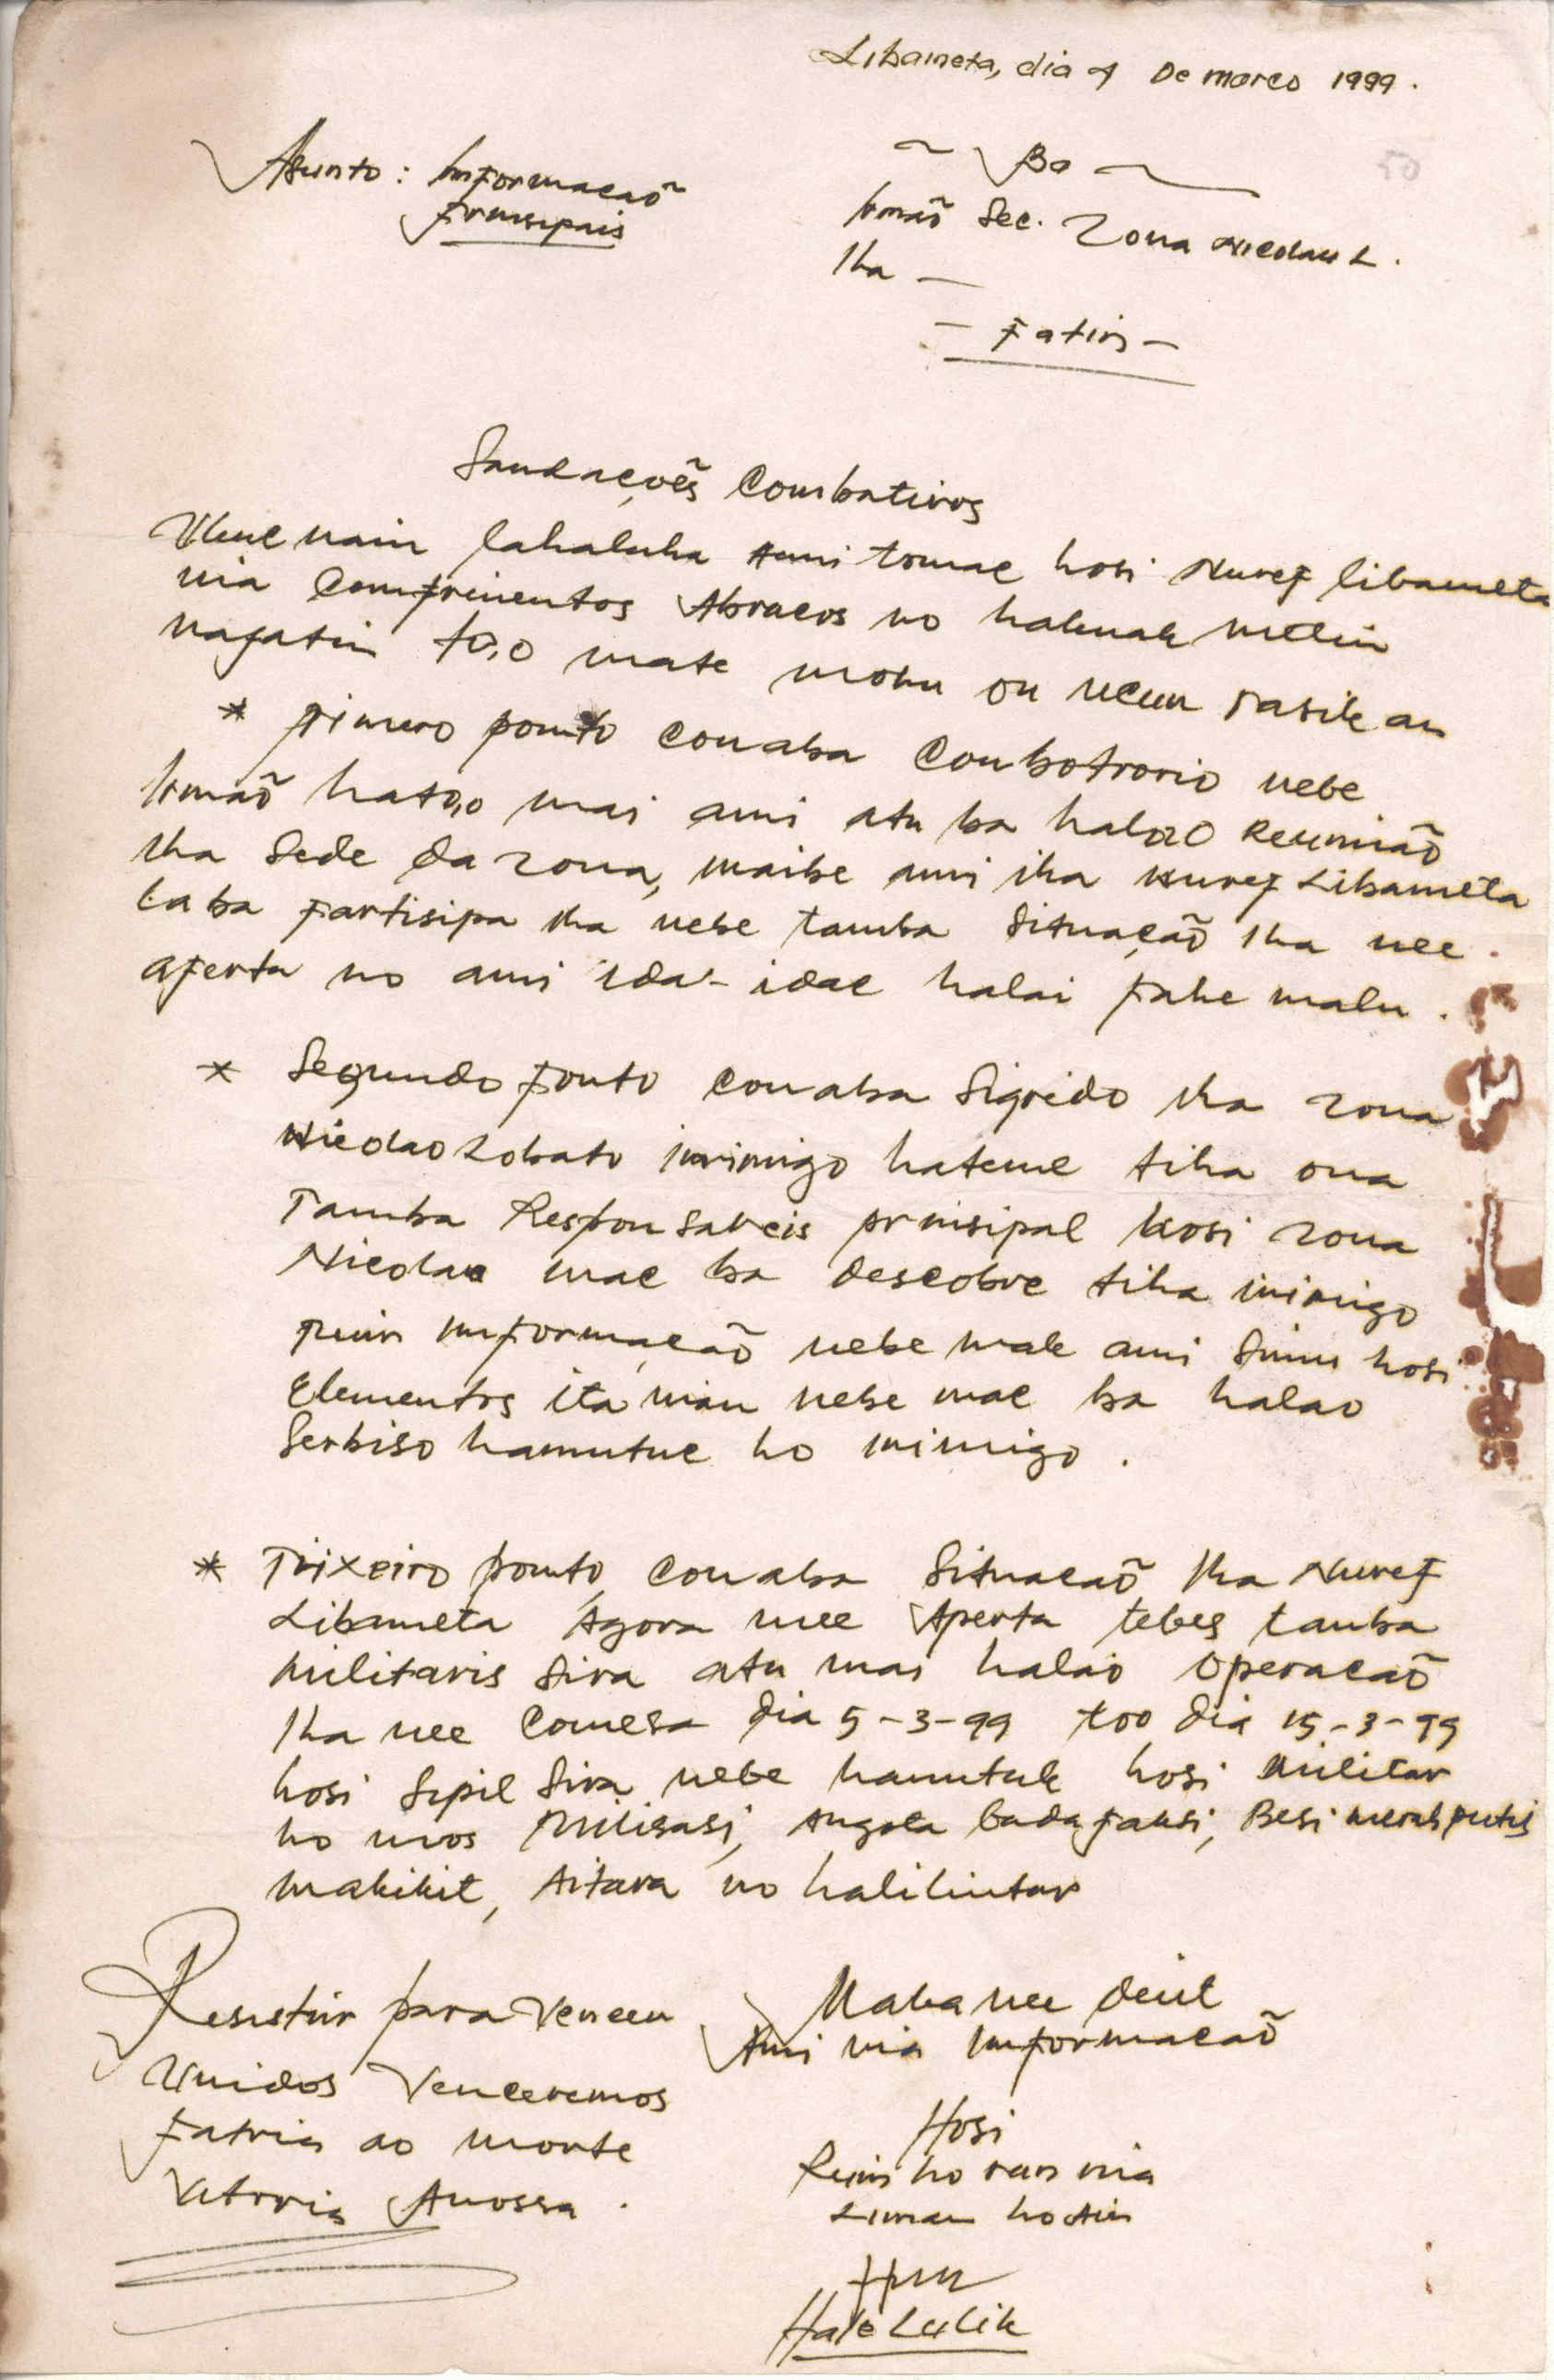 Libameta, dia 4 De março 1999.
50
Asunto: Informacaõ
prinsipais
~ Ba ~
Irmaõ Sec. Zona Nicolau L.
Iha —
— Fatin —
Saudaçoẽs Combativos
Uluc nain lahaluha Ami tomac hosi Nuref libameta
nia Comprimentos Abracos no hakuak metin
nafatin to,o mate moku ou ucun rasik an
* primero pomto conaba Conbotrorio nebe
Irmaõ hato,o mai ami atu ba halao Reuniaõ
Iha Sede da zona, maibe ami iha Nuref Libameta
la ba partisipa Iha nebe tamba Situaçaõ Iha nee
aperta no ami ida-idac halai fahe malu.
* Segundo ponto conaba Sigredo iha zona
Nicolao Lobato inimigo hatene tiha ona
Tamba Responsaveis prinsipal hosi zona
Nicolau mac ba descobre tiha inimigo
Tuir informaçaõ nebe mak ami Simu hosi
Elementos ita nian nebe mac ba halao
Serbiso hamutuc ho inimigo.
* Trixeiro pomto, conaba Situacaõ Iha Nuref
Libameta Agora nee Aperta tebes tamba
militaris Sira atu mai halao Operacaõ
Iha nee Comesa dia 5-3-99 too dia 15-3-99
hosi Sipil Sira nebe hamutuk hosi Militar
ho mos Milisasi, Angota Gadapaksi, Besi merah putih
makikit, Aitara no halilintar
Resistir para Vencer
Unidos Venceremos
Patria ao morte
Vitoria Anossa.
Maka nee deit
Ami nia Informacaõ
Hosi
Ruin ho ran nia
Liman ho Ain
Hale Lulik